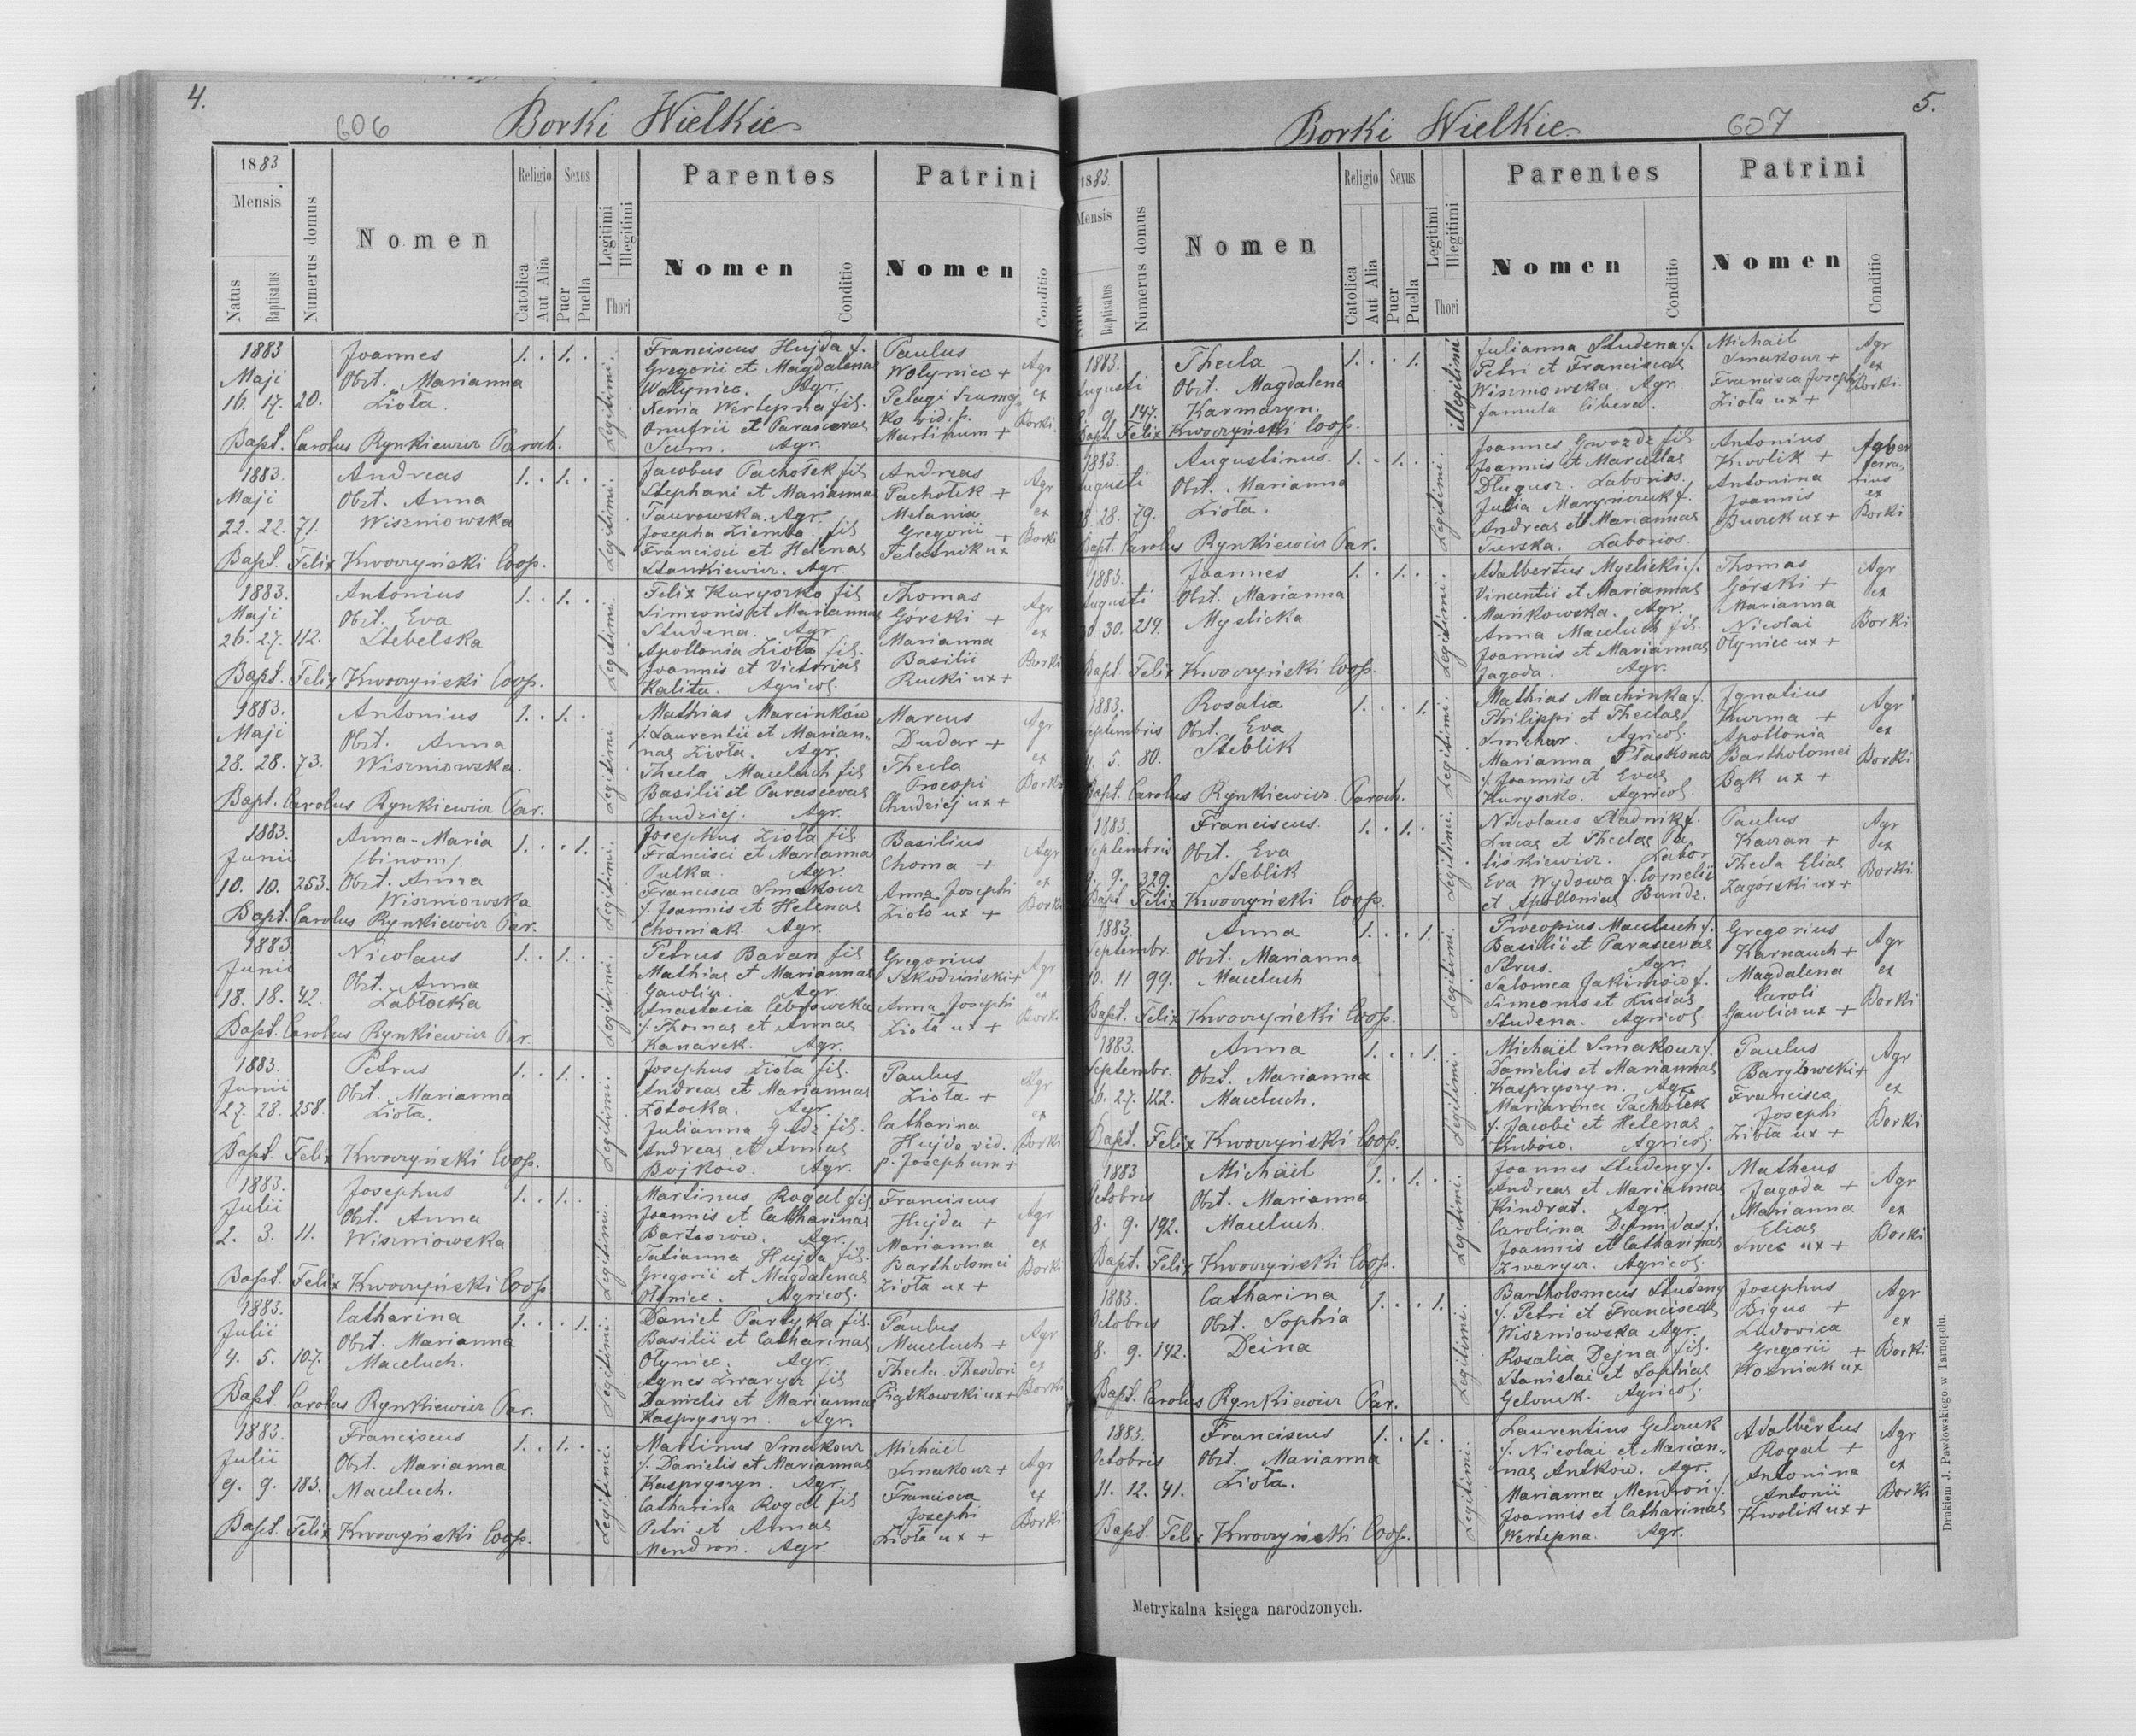 4.
606
Borki Wielkie
1883
Mensis
Natus
Baptisatus
Numerus domus
Nomen
Religio
Catolica
Aut Alia
Sexus
Puer
Puella
Legitimi
Illegitimi
Thori
Parentes
Nomen
Conditio
Patrini
Nomen
Conditio
1883
Maji
16. 17. 20.
Joannes
Obst. Marianna
Ziola.
1. . 1. .
Legitimi.
Franciscus Hujda f.
Gregorii et Magdalenae
Wołyniec. Agr.
Xenia Wertepna fil.
Onufrii et Parascevae
Sum. Agr.
Paulus
Wołyniec +
Pelagi
ko vid. p.
Martinum +
Agr
ex
Borki.
Bapt. Carolus Rynkiewicz Paroch.
1883.
Maji
22. 22. 71.
Andreas
Obst. Anna
Wiszniowska
1. . 1. .
Legitimi.
Jacobus Pachołek fil
Stephani et Mariannae
Taurowska. Agr.
Josepha Ziemba fil
Francisci et Helenae
Stankiewicz. Agr.
Andreas
Pachołek +
Melania
Gregorii +
Feleśnik ux
Agr
ex
Borki
Bapt. Felix Kwoczyński Coop.
1883.
Maji
26. 27. 112.
Antonius
Obst. Eva
Stebelska
1. . 1. .
Legitimi.
Felix Kuryszko fil
Simeonis et Mariannae
Studena. Agr.
Apollonia Ziola fil.
Joannis et Victoriae
Kalita. Agricol.
Thomas
Górski +
Marianna
Basilii
Rucki ux +
Agr
ex
Borki
Bapt. Felix Kwoczyński Coop.
1883.
Maji
28. 28. 73.
Antonius
Obst. Anna
Wiszniowska.
1. . 1. .
Legitimi.
Mathias Marcinków
f. Laurentii et Marian„
nae Ziola. Agr.
Thecla Maceluch fil
Basilii et Parascevae
Chudziej. Agr.
Marcus
Dudar +
Thecla
Procopi
Chudziej ux +
Agr
ex
Borki
Bapt. Carolus Rynkiewicz Par.
1883.
Junii
10. 10. 253.
Anna-Maria
/binom/.
Obst. Anna
Wiszniowska
1. . . 1.
Legitimi.
Josephus Ziola fil
Francisci et Marianna
Pulka. Agr.
Francisca Smakour
f. Joannis et Helenae
Chomiak. Agr.
Basilius
Choma +
Anna Josephi
Ziola ux +
Agr
ex
Borki
Bapt. Carolus Rynkiewicz Par.
1883.
Junii
18. 18. 42.
Nicolaus
Obst. Anna
Zabłocka
1. . 1. .
Legitimi.
Petrus Baran fil
Mathiae et Mariannae
Gawlicz. Agr.
Anastasia Cebrowska
f. Thomae et Annae
Kanarek. Agr.
Gregorius
Skodziński +
Anna Josephi
Ziola ux +
Agr
ex
Borki
Bapt. Carolus Rynkiewicz Par.
1883.
Junii
27. 28. 258.
Petrus
Obst. Marianna
Ziola.
1. . 1. .
Legitimi.
Josephus Ziola fil.
Andreae et Mariannae
Zotocka. Agr.
Julianna Gudz fil.
Andreae et Annae
Bojkow. Agr.
Paulus
Ziola +
Catharina
Hujda vid.
p. Josephum +
Agr
ex
Borki
Bapt. Felix Kwoczyński Coop.
1883.
Julii
2. 3. 11.
Josephus
Obst. Anna
Wiszniowska
1. . 1. .
Legitimi.
Martinus Rogal fil.
Joannis et Catharinae
Bartosiow. Agr.
Tatianna Hujda fil.
Gregorii et Magdalenae
Ołyniec. Agricol.
Franciscus
Hujda +
Marianna
Bartholomei
Ziola ux +
Agr
ex
Borki
Bapt. Felix Kwoczyński Coop
1883.
Julii
4. 5. 107.
Catharina
Obst. Marianna
Maceluch.
1. . . 1.
Legitimi.
Daniel Partyka fil.
Basilii et Catharinae
Ołyniec. Agr.
Agnes Zwarycz fil
Danielis et Mariannae
Kaspryszyn. Agr.
Paulus
Maceluch +
Thecla Theodori
Piątkowski ux +
Agr
ex
Borki
Bapt. Carolus Rynkiewicz Par.
1883.
Julii
9. 9. 183.
Franciscus
Obst. Marianna
Maceluch.
1. . 1. .
Legitimi.
Martinus Smakour
f. Danielis et Mariannae
Kaspryszyn. Agr.
Catharina Rogal fil
Petri et Annae
Mendron. Agr.
Michäel
Smakour +
Francisca
Josephi
Ziola ux +
Agr
ex
Borki
Bapt. Felix Kwoczyński Coop.
5.
607
Borki Wielkie
1883.
Mensis
Natus
Baptisatus
Numerus domus
Nomen
Religio
Catolica
Aut Alia
Sexus
Puer
Puella
Legitimi
Illegitimi
Thori
Parentes
Nomen
Conditio
Patrini
Nomen
Conditio
1883.
Augusti
9. 147.
Thecla
Obst. Magdalena
Karmazyn.
1. . . 1.
illegitimi
Julianna Studena f.
Petri et Franciscae
Wiszniowska. Agr.
famula libera.
Michäel
Smakour +
Francisca Josephi
Ziola ux +
Agr
ex
Borki.
Bapt. Felix Kwoczyński Coop.
1883.
Augusti
28. 28. 79.
Augustinus.
Obst. Marianna
Ziola.
1. . 1. .
Legitimi.
Joannes Gwozdz fil
Joannis et Marcellae
Długusz. Laborios.
Julia Maryńczuk f.
Andreae et Mariannae
Turska. Laborios.
Antonius
Kwolik +
Antonina
Joannis
Burek ux +
faber
ferra„
rius
ex
Borki
Bapt. Carolus Rynkiewicz Par.
1883.
Augusti
30. 30. 214.
Joannes
Obst. Marianna
Myslicka
1. . 1. .
Legitimi.
Adalbertus Myslicki f.
Vincentii et Mariannae
Mańkowska. Agr.
Anna Maceluch fil.
Joannis et Mariannae
Jagoda. Agr.
Thomas
Górski +
Marianna
Nicolai
Ołyniec ux +
Agr
ex
Borki
Bapt. Felix Kwoczyński Coop.
1883.
Septembris
4. 5. 80.
Rosalia
Obst. Eva
Steblik
1. . . 1.
Legitimi.
Mathias Machinka f.
Philippi et Theclae
Smichur. Agricol.
Marianna Płaskona
f. Joannis et Evae
Kuryszko. Agricol.
Ignatius
Kuzma +
Apollonia
Bartholomei
Bąk ux +
Agr
ex
Borki
Bapt. Carolus Rynkiewicz. Paroch.
1883.
Septembris
9. 9. 329.
Franciscus.
Obst. Eva
Steblik
1. . 1. .
Legitimi.
Nicolaus Sładnik f.
Lucae et Theclae Pa
liśkiewicz. Labor
Eva Wydowa f. Cornelii
et Apolloniae Bundz.
Paulus
Kazan +
Thecla Eliae
Zagórski ux +
Agr
ex
Borki.
Bapt Felix Kwoczyński Coop.
1883.
Septembr.
10. 11 99.
Anna
Obst. Marianna
Maceluch
1. . . 1.
Legitimi.
Procopius Maceluch f.
Basilii et Parascevae
Strus. Agr.
Salomea Jakimow f.
Simeonis et Luciae
Studena. Agricol
Gregorius
Karnauch +
Magdalena
Caroli
Gawlicz ux +
Agr
ex
Borki
Bapt. Felix Kwoczyński Coop.
1883.
Septembr.
26. 27. 122.
Anna
Obst. Marianna
Maceluch.
1. . . 1.
Legitimi.
Michäel Smakour f.
Danielis et Mariannae
Kaspryszyn. Agr.
Marianna Pachołek
f. Jacobi et Helenae
Kubów. Agricol.
Paulus
Baryłowski +
Francisca
Josephi
Ziola ux +
Agr
ex
Borki
Bapt. Felix Kwoczyński Coop.
1883
Octobris
8. 9. 192.
Michäel
Obst. Marianna
Maceluch.
1. . 1. .
Legitimi.
Joannes Studeny f.
Andreae et Mariannae
Kindrat. Agr.
Carolina Demidas f.
Joannis et Catharinae
Zwarycz. Agricol.
Matheus
Jagoda +
Marianna
Eliae
Swec ux +
Agr
ex
Borki
Bapt. Felix Kwoczyński Coop.
1883.
Octobris
8. 9. 142.
Catharina
Obst. Sophia
Dejna
1. . . 1.
Legitimi.
Bartholomeus Studeny
f. Petri et Franciscae
Wiszniowska Agr.
Rosalia Dejna fil.
Stanislai et Sophiae
Gelczuk. Agricol.
Josephus
Bigus +
Ludovica
Gregorii +
Woźniak ux
Agr
ex
Borki
Bapt. Carolus Rynkiewicz Par.
1883.
Octobris
11. 12. 41.
Franciscus
Obst. Marianna
Ziola.
1. . 1. .
Legitimi.
Laurentius Gelczuk
f. Nicolai et Marian„
nae Antków. Agr.
Marianna Mendroń f.
Joannis et Catharinae
Wertepna. Agr.
Adalbertus
Rogal +
Antonina
Antonii
Kwolik ux +
Agr
ex
Borki
Bapt. Felix Kwoczyński Coop.
Metrykalna księga narodzonych.
Drukiem J. Pawłowskiego w Tarnopolu.